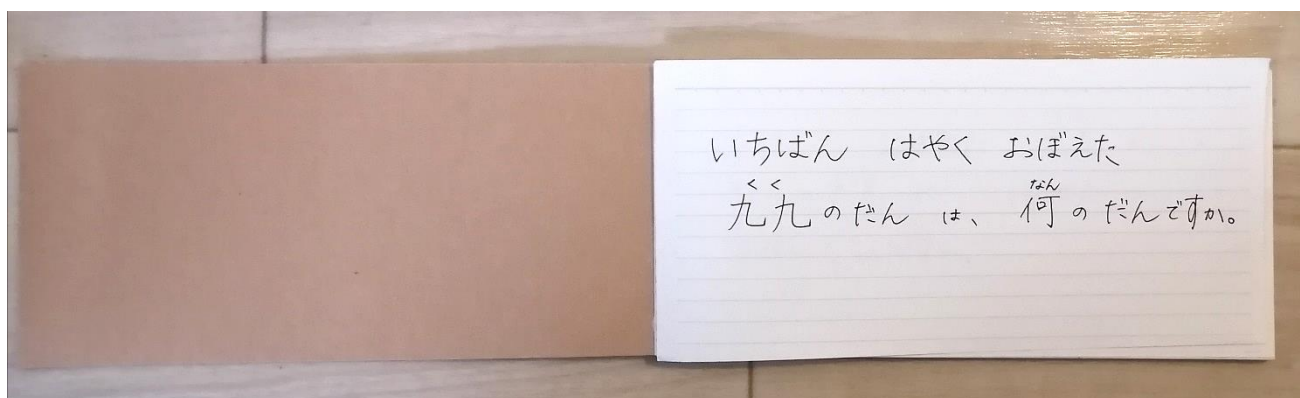 いちばん はやく おぼえた
九九のだん は、 何のだんですか。